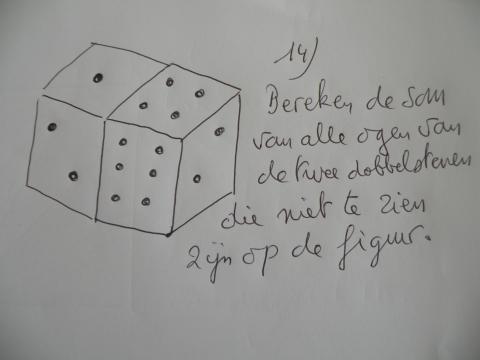 14)
Bereken de som
van alle ogen van
de twee dobbelstenen
die niet te zien
zijn op de figuur.